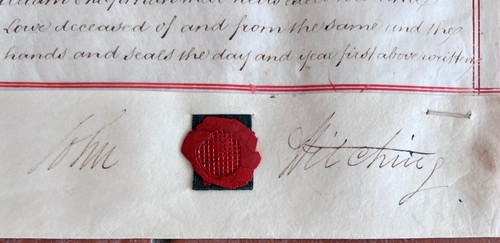 Lowe deceased of and from the same and the
hands and seals the day and year first above written
John Hitching